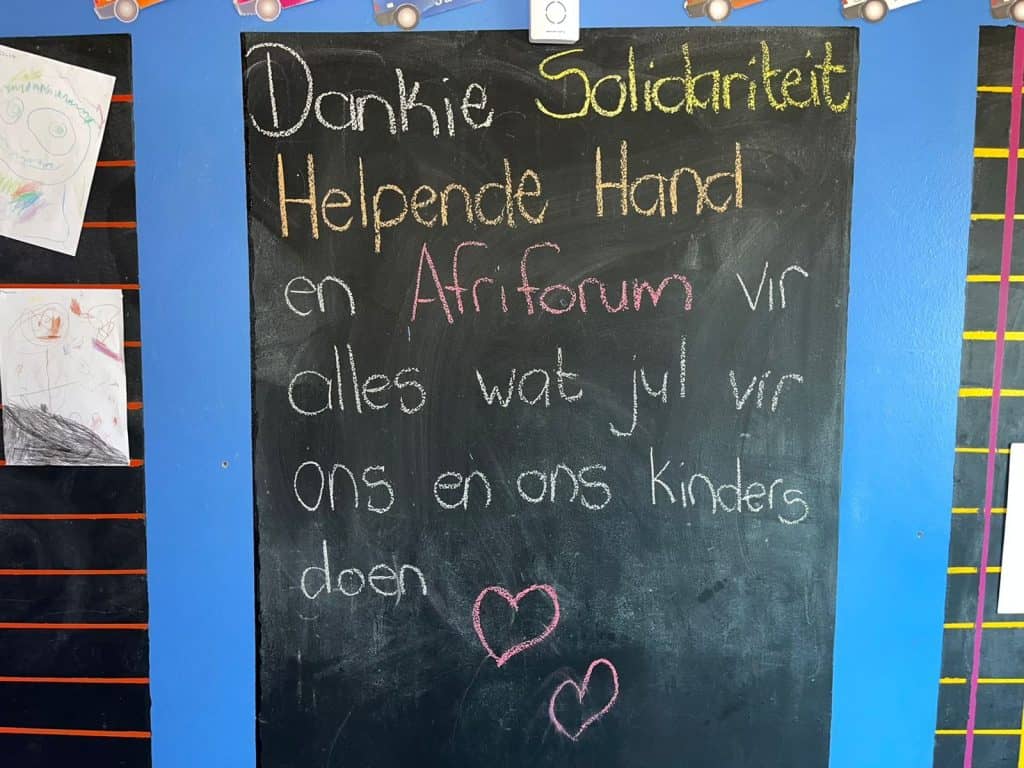 Dankie Solidariteit
Helpende Hand
en Afriforum vir
alles wat jul vir
ons en ons kinders
doen